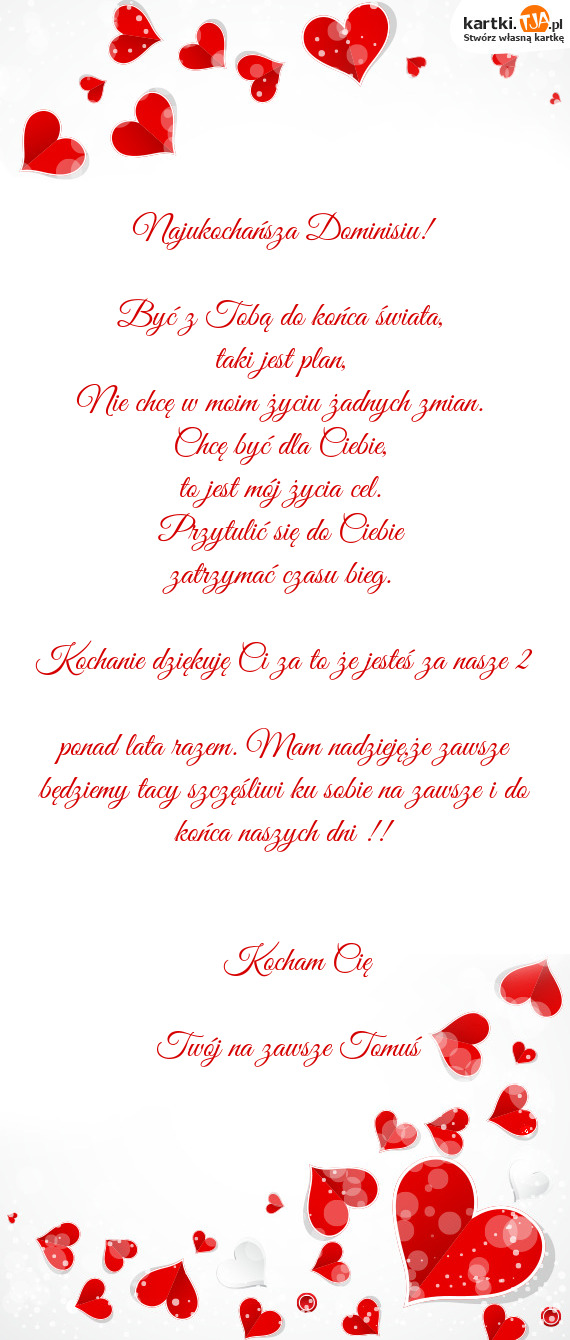 kartki.TJA.pl
Stwórz własną kartkę
Najukochańsza Dominisiu!
Być z Tobą do końca świata,
taki jest plan,
Nie chcę w moim życiu żadnych zmian.
Chcę być dla Ciebie,
to jest mój życia cel.
Przytulić się do Ciebie
zatrzymać czasu bieg.
Kochanie dziękuję Ci za to że jesteś za nasze 2
ponad lata razem. Mam nadzieję,że zawsze
będziemy tacy szczęśliwi ku sobie na zawsze i do
końca naszych dni !!
Kocham Cię
Twój na zawsze Tomuś